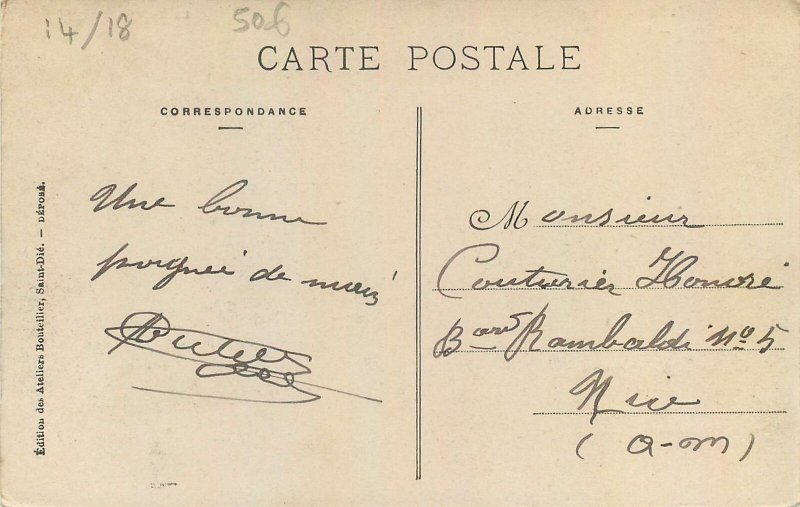 14/18
506
CARTE POSTALE
CORRESPONDANCE
ADRESSE
Une bonne
poignée de main
Monsieur
Couturier Honoré
Bard Rambaldi No 5
Nice
(A-M)
Édition des Ateliers Bouteillier, Saint-Dié. — DÉPOSÉ.